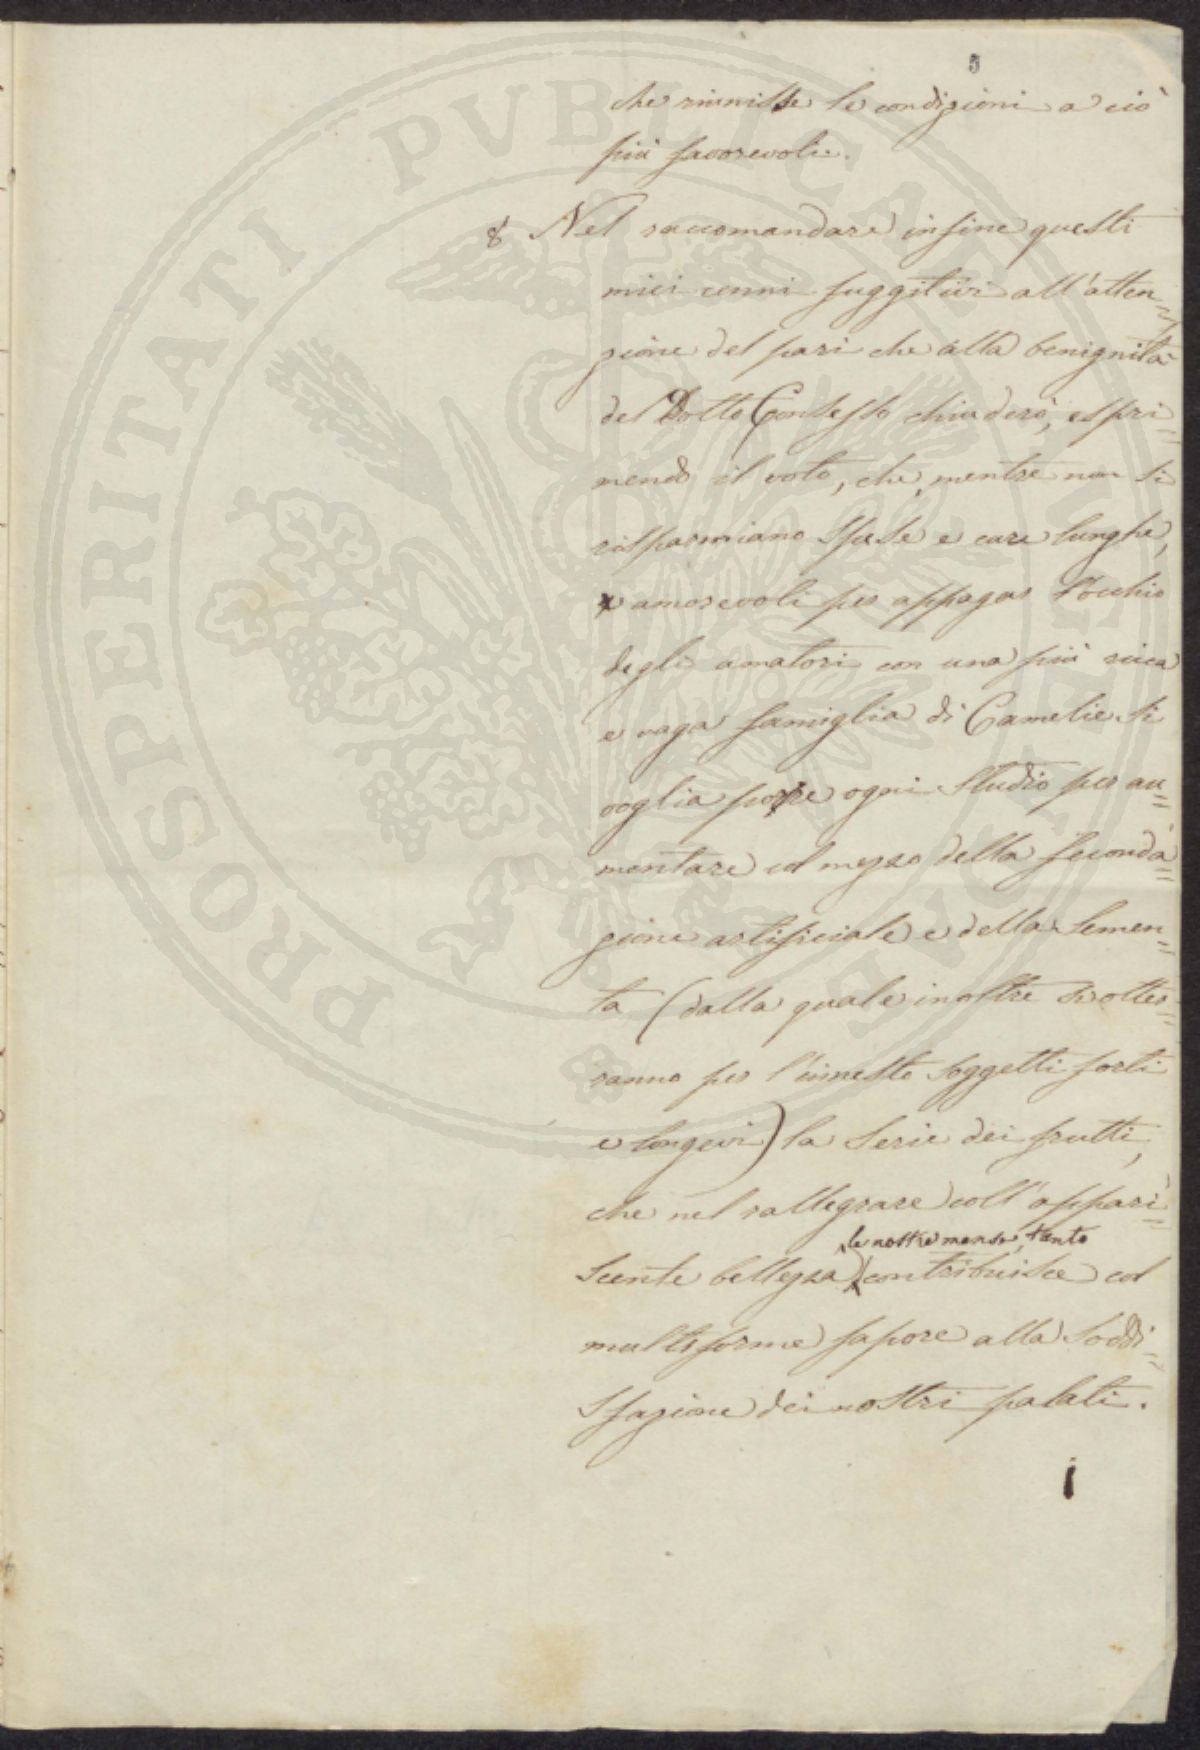 5
che riunisse le condizioni a ciò
più favorevoli.
8 Nel raccomandare infine questi
miei cenni fuggitivi all'atten=
zione del pari che alla benignità
del Dotto Consesso chiuderò, espri=
mendo il voto, che, mentre non si
risparmiano spese e cure lunghe,
e amorevoli per appagar l'occhio
degli amatori con una più ricca
e vaga famiglia di Camelie si
voglia porre ogni studio per au=
mentare col mezzo della feconda=
zione artificiale e della semen=
ta (dalla quale inoltre si otter=
ranno per l'innesto soggetti forti
e longevi) la serie dei frutti,
che nel rallegrare coll'appari=
le nostre mense, tanto
scente bellezza contribuisce col
multiforme sapore alla soddi=
sfazione dei nostri palati.
PROSPERITATI PVBLICAE AVGENDAE